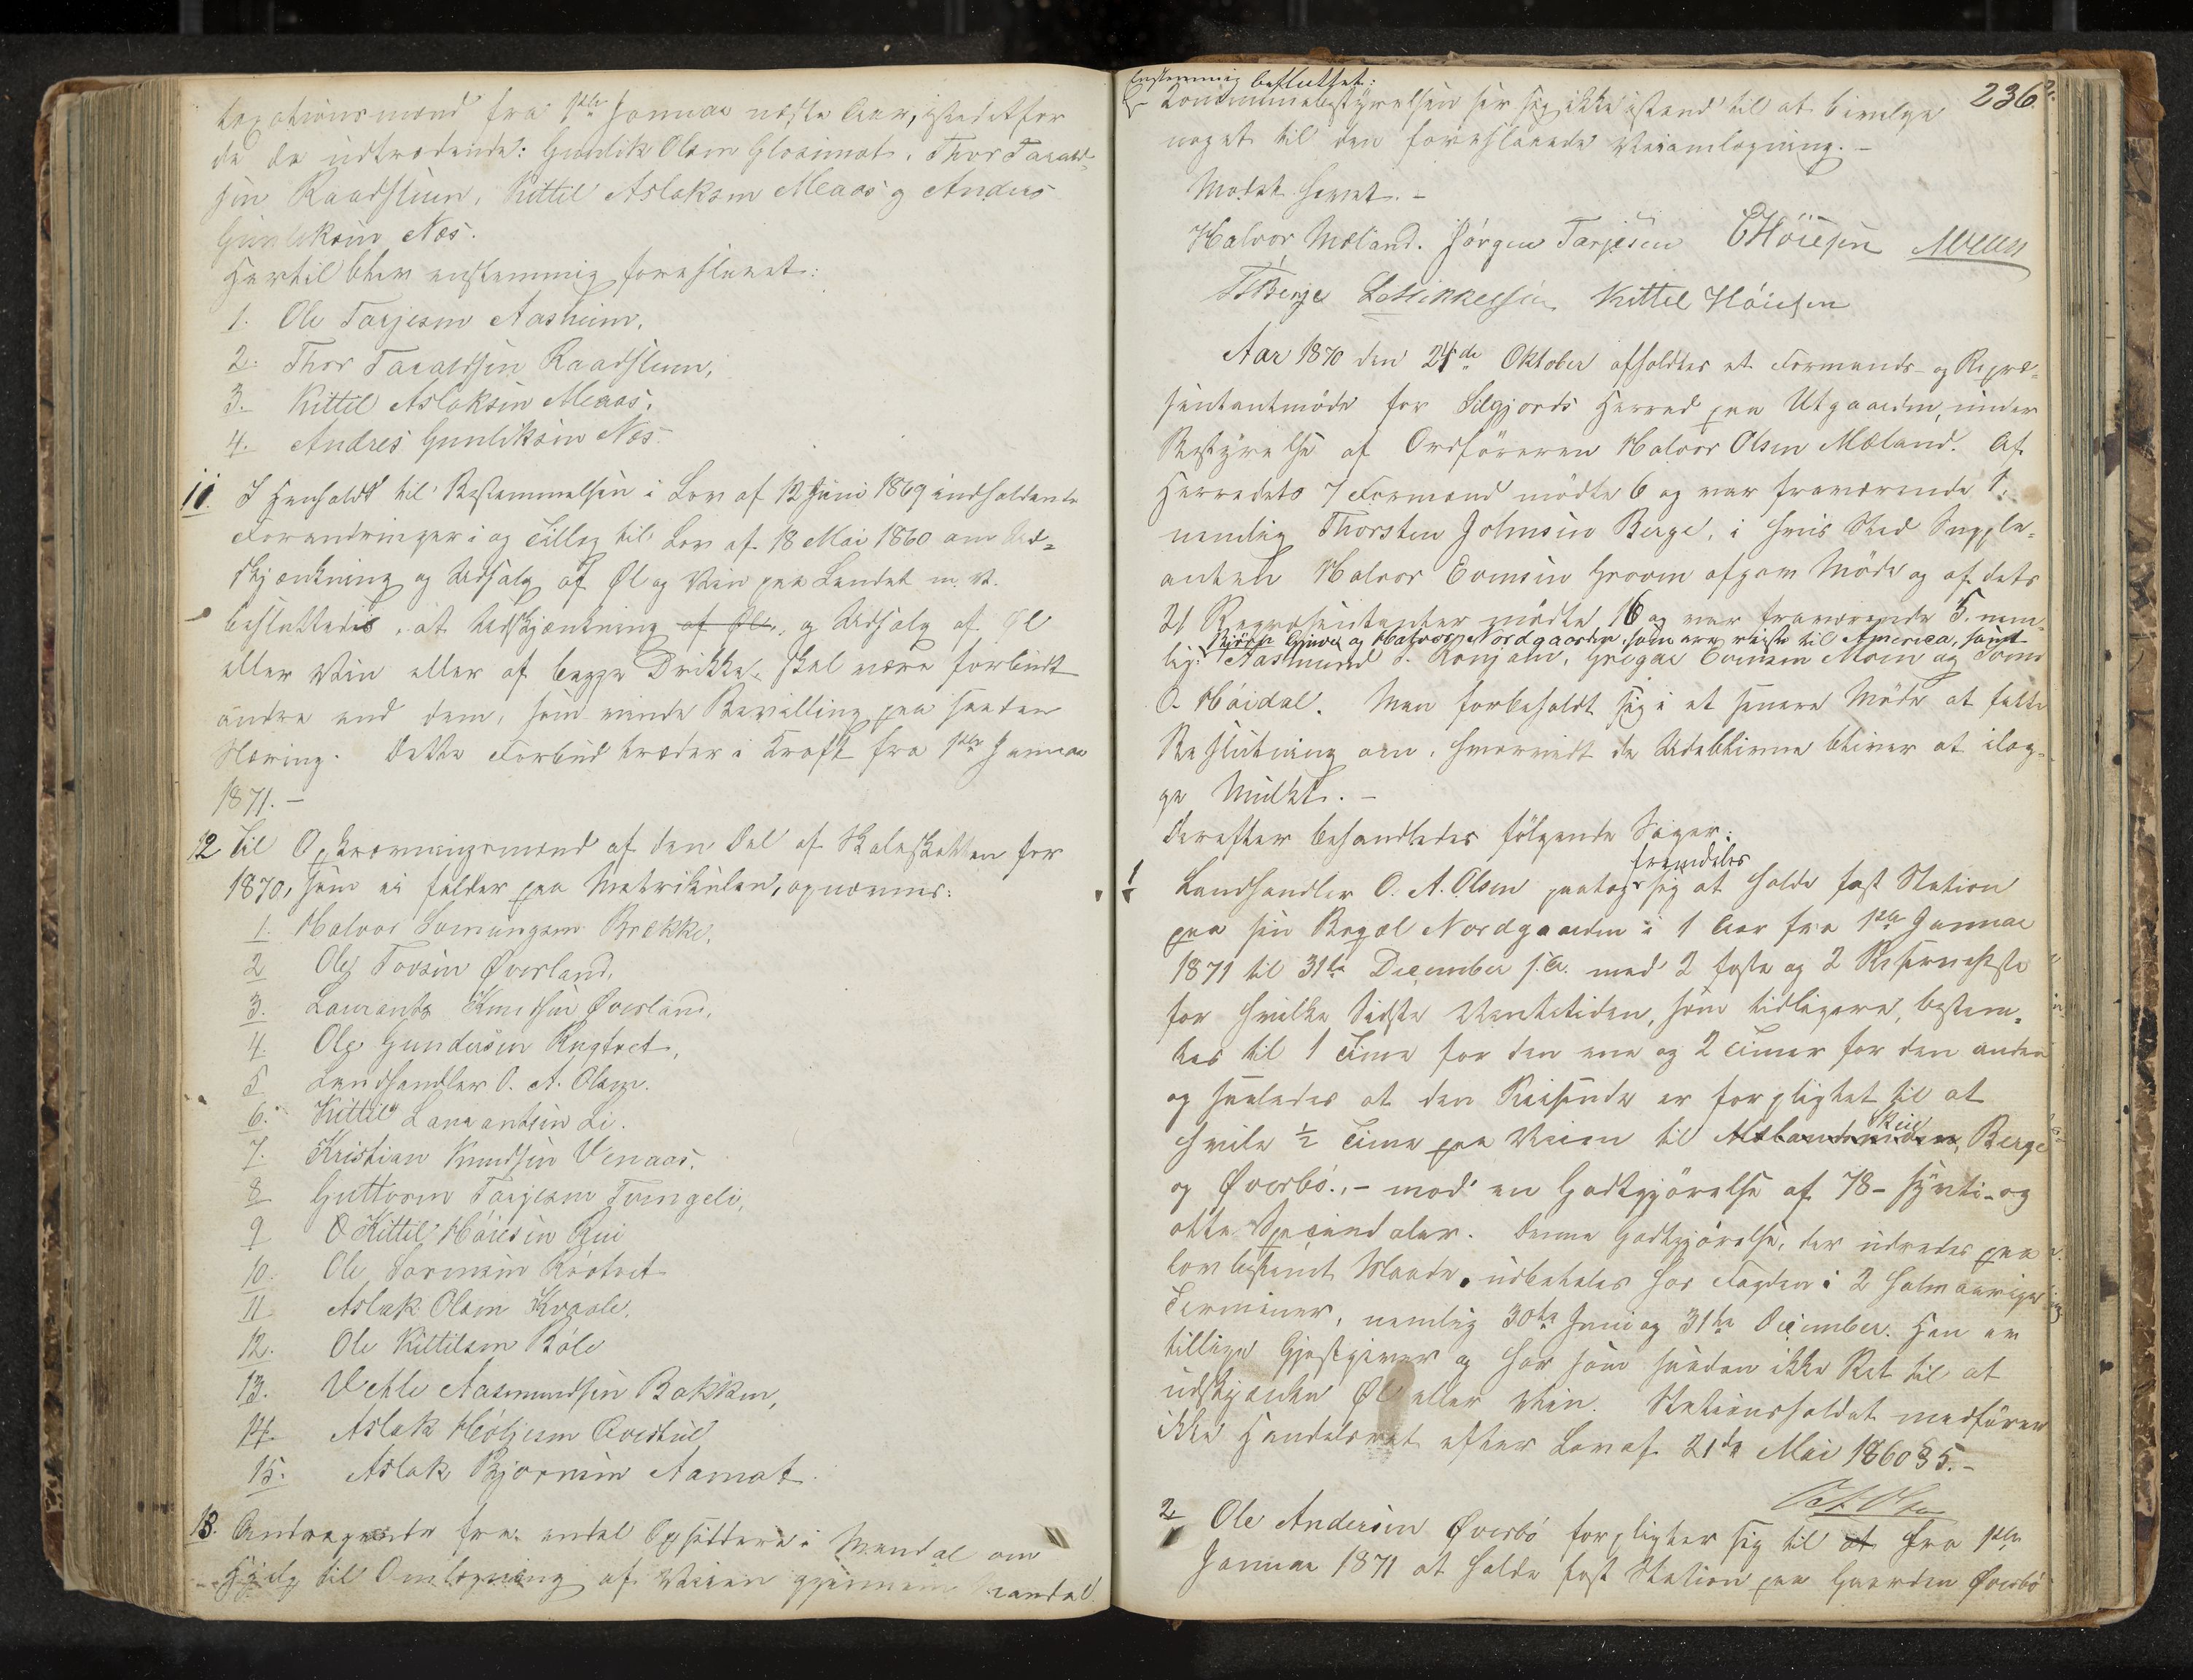 taxationsmænd fra 1ste Januar næste Aar, istedetfor
de da udtrædende: Gunlik Olsen Glosimot, Thor Tarald-
sen Raadstuen, Kittil Aslaksen Meaas og Anders
Gunleksen Næs.
Hertil blev enstemmig foreslaaet:
1. Ole Tarjesen Aasheim,
2. Thor Taraldsen Raadstuen,
3. Kittil Aslaksen Meaas,
4. Andres Gunleksen Næs.
11. I Henhold til Bestemmelsen i Lov af 12 Juni 1869 indholdende
Forandringer i og Tillæg til Lov af 18 Mai 1860 om Ud-
skjænkning og Udsalg af Øl og Vin paa Landet m. v.
besluttedes, at Udskjænkning af Øl, og Udsalg af Øl
eller Vin eller af begge Drikke, skal være forbudt
andre end dem, som vinde Bevilling paa saadan
Næring. Dette Forbud træder i Kraft fra 1ste Januar
1871. –
12 Til Opkrævningsmænd af den Del af Skoleskatten for
1870, som ei falder paa Matrikulen, opnævnes:
1. Halvor Sveinungsen Brække,
2 Olej Tovsen Øverland,
3. Laurants Knudsen Øverland,
4. Olej Gundersen Rugtvet,
5 Landhandler O. A. Olsen.
6. Kittil Laurantsen Li.
7. Kristian Knudsen Vinaas,
8 Guttorm Tarjesen Tveingeli,
9 Kittil Höiesen Rui
10. Ole Sørensen Röstvet
11 Aslak Olsen Kvaale,
12. Ole Kittilsen Böle
13. Vetle Aasmundsen Bakken,
14. Aslak Höljesen Qverstul
15. Aslak Bjørnsen Aamot.
13. Andragende fra endel Opsiddere i Mandal om
Hjelp til Omlægning af Veien gjennem Mandal.
Enstemmig besluttet:
236.
Kommunebestyrelsen ser sig ikke istand til at bevilge
noget til den foreslaaede Veiomlægning. –
Mødet hævet. –
Halvor Mæland. Jörgen Tarjesen EHöiesen
TJBerge LMikkelsen Kittil Höiesen
Aar 1870 den 24de Oktober afholdtes et Formands- og Repræ-
sentantmöde for Silgjords Herred paa Utgaarden, under
Bestyrelse af Ordföreren Halvor Olsen Mæland. Af
Herredets 7 Formænd mödte 6 og var fraværende 1:
nemlig Thorsten Johnsen Berge, i hvis Sted Supple-
anten Halvor Evensen Groven afgav Möde og af dets
21 Repræsentanter mødte 16 og var fraværende 5. nem-
Björn Gjivre og Halvor Nordgaarden, som ere reiste til America, samt
lig: Aasmund S. Ronjom, Gregar Evensen Moen og
O. Höidal. Man forbeholdt sig i et senere Möde at fatte
Beslutning om, hvorvidt de Udeblivne bliver at ilæg-
ge Mulkt. –
Derefter behandledes følgende Sager:
fremdeles
1 Landhandler O. A. Olsen paatog sig at holde fast Station
paa sin Bopæl Nordgaarden i 1 Aar fra 1ste Januar
1871 til 31te December s. A. med 2 faste og 2 Reserveheste
for hvilke Sidste Ventetiden, som tidligere, bestem-
tes til 1 Time for den ene og 2 Timer for den anden
og saaledes at den Reisende er forpligtet til at
hvile ½ Time paa Veien til Skei, Berge
og Øverbö, – mod en Godtgjörelse af 78 – sytti- og
otte Speciedaler. Denne Godtgjörelse, der udredes paa
lovbestemt Maade, udbetales hos Fogden i 2 halvaarige
Terminer, nemlig 30te Juni og 31te December. Han er
tillige Gjæstgiver og har som saadan ikke Ret til at
udskjænke Øl eller Vin. Stationsholdet medfører
ikke Handelsret efter Lov af 21de Mai 1860 § 5. –
O A Olsen
2 Ole Andersen Øverbö forpligter sig til at fra 1ste
Januar 1871 at holde fast Station paa Gaarden Øverbö